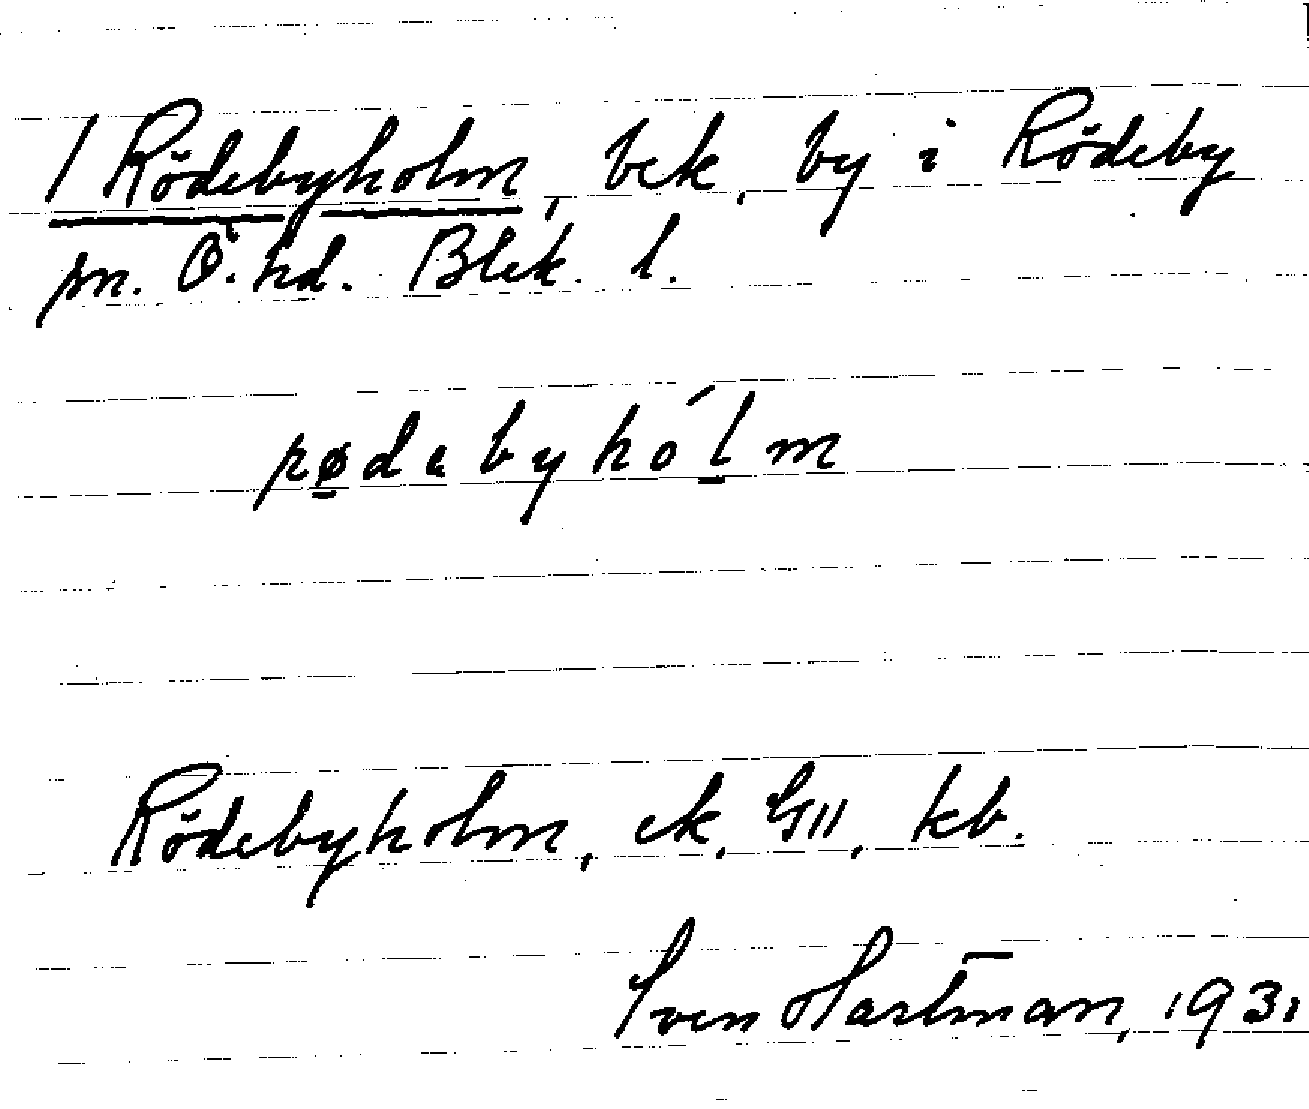 / Rödebyholm, bek, by i Rödeby
sn. Ö. hd. Blek. l.
rødebyhólm
Rödebyholm, ek, GII, kb.
Sven Hartman, 1931